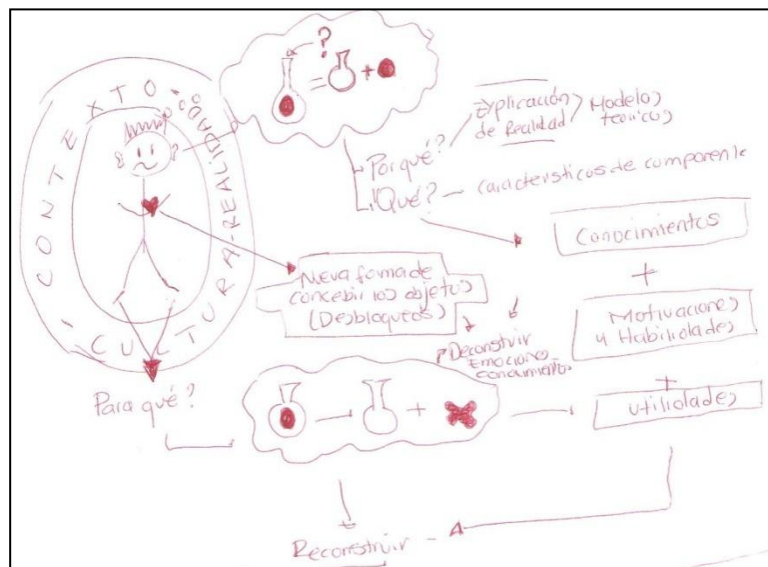 CONTEXTO-
CULTURA-REALIDAD
?
= +
Por qué?
Explicación
de Realidad
Modelos
teóricos
Qué? - Características de
Conocimientos
+
Motivaciones
y Habilidades
+
utilidades
Nueva forma de
concebir los objetos
(Desbloqueos)
Deconstruir
Para qué?
+
Reconstruir -